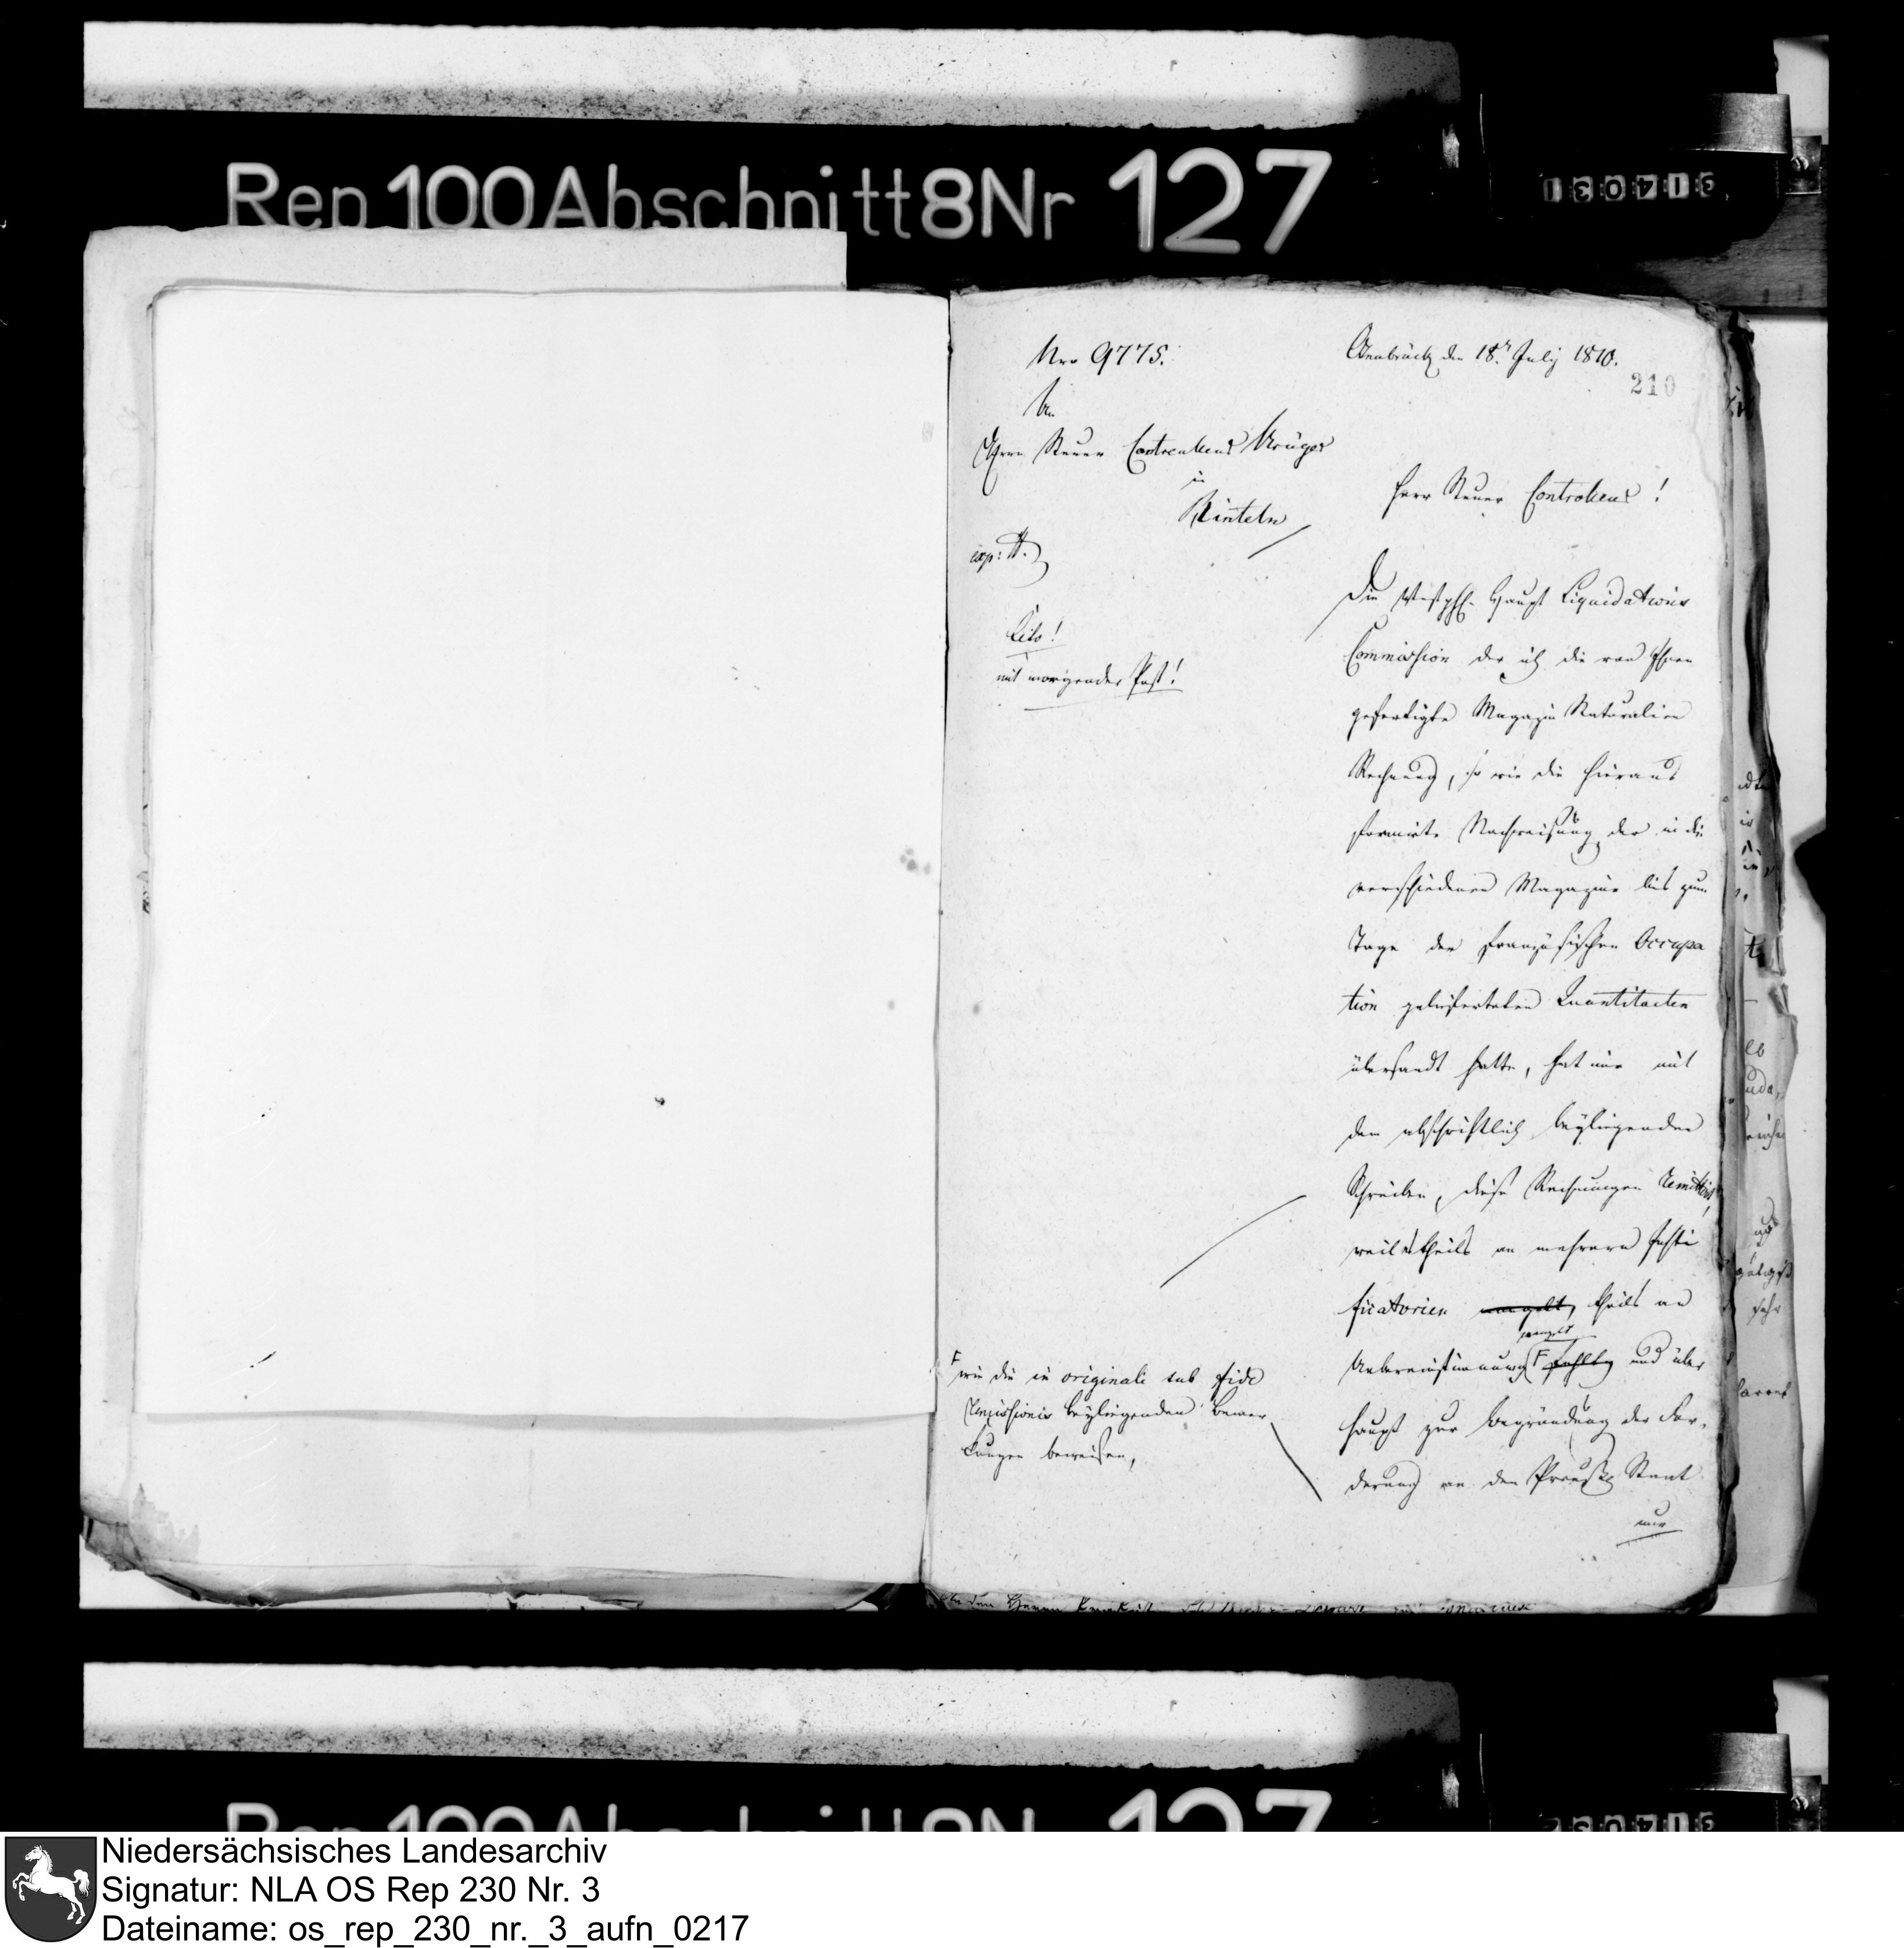 Rep 100 Abschnitt 8 Nr 127
314031
Nro 9775.
Osnabrück den 18n July 1810.
210
An
Herrn Steuer Controlleur Krüger
in
Rinteln
exp:
Cito!
mit morgender Post!
Herr Steuer Controleur!
Die Westphl. Haupt Liquidations
Commission der ich die von Ihnen
gefertigte Magazin Naturalien
Rechnung, so wie die hieraus
formirte Nachweisung der in die
verschiedenen Magazine bis zum
Tage der französischen Occupa
tion gelieferten Quantitaeten
übersandt hatte, hat mir mit
dem abschriftlich beyliegenden
Schreiben, diese Rechnungen remittirt,
weil es theils an mehreren Justi
ficatorien mangelt, theils an
mangelt
Uebereinstimmung F fehlt, und über
haupt zur Begründung der For-
derung an den Preuß. Staat
nur
F
wie die in originali sub fide
remissionis beyliegenden Bemer
kungen beweisen,
Niedersächsisches Landesarchiv
Signatur: NLA OS Rep 230 Nr. 3
Dateiname: os_rep_230_nr._3_aufn_0217